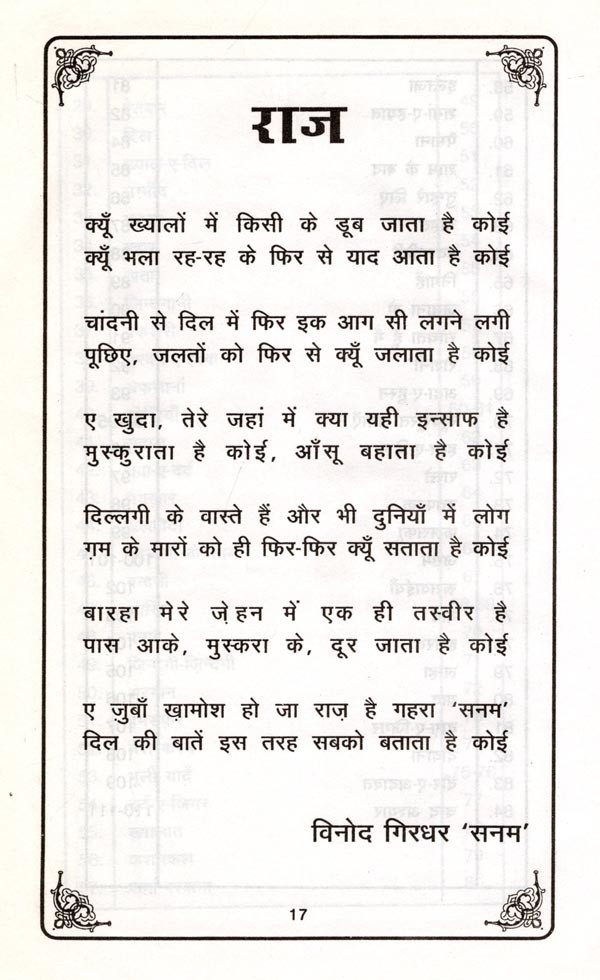 राज
क्यूँ ख्यालों में किसी के डूब जाता है कोई
क्यूँ भला रह-रह के फिर से याद आता है कोई
चांदनी से दिल में फिर इक आग सी लगने लगी
पूछिए, जलतों को फिर से क्यूँ जलाता है कोई
ए खुदा, तेरे जहां में क्या यही इन्साफ है
मुस्कुराता है कोई, आँसू बहाता है कोई
दिल्लगी के वास्ते हैं और भी दुनियाँ में लोग
ग़म के मारों को ही फिर-फिर क्यूँ सताता है कोई
बारहा मेरे ज़ेहन में एक ही तस्वीर है
पास आके, मुस्करा के, दूर जाता है कोई
ए ज़ुबाँ ख़ामोश हो जा राज़ है गहरा ‘सनम’
दिल की बातें इस तरह सबको बताता है कोई
विनोद गिरधर ‘सनम’
17